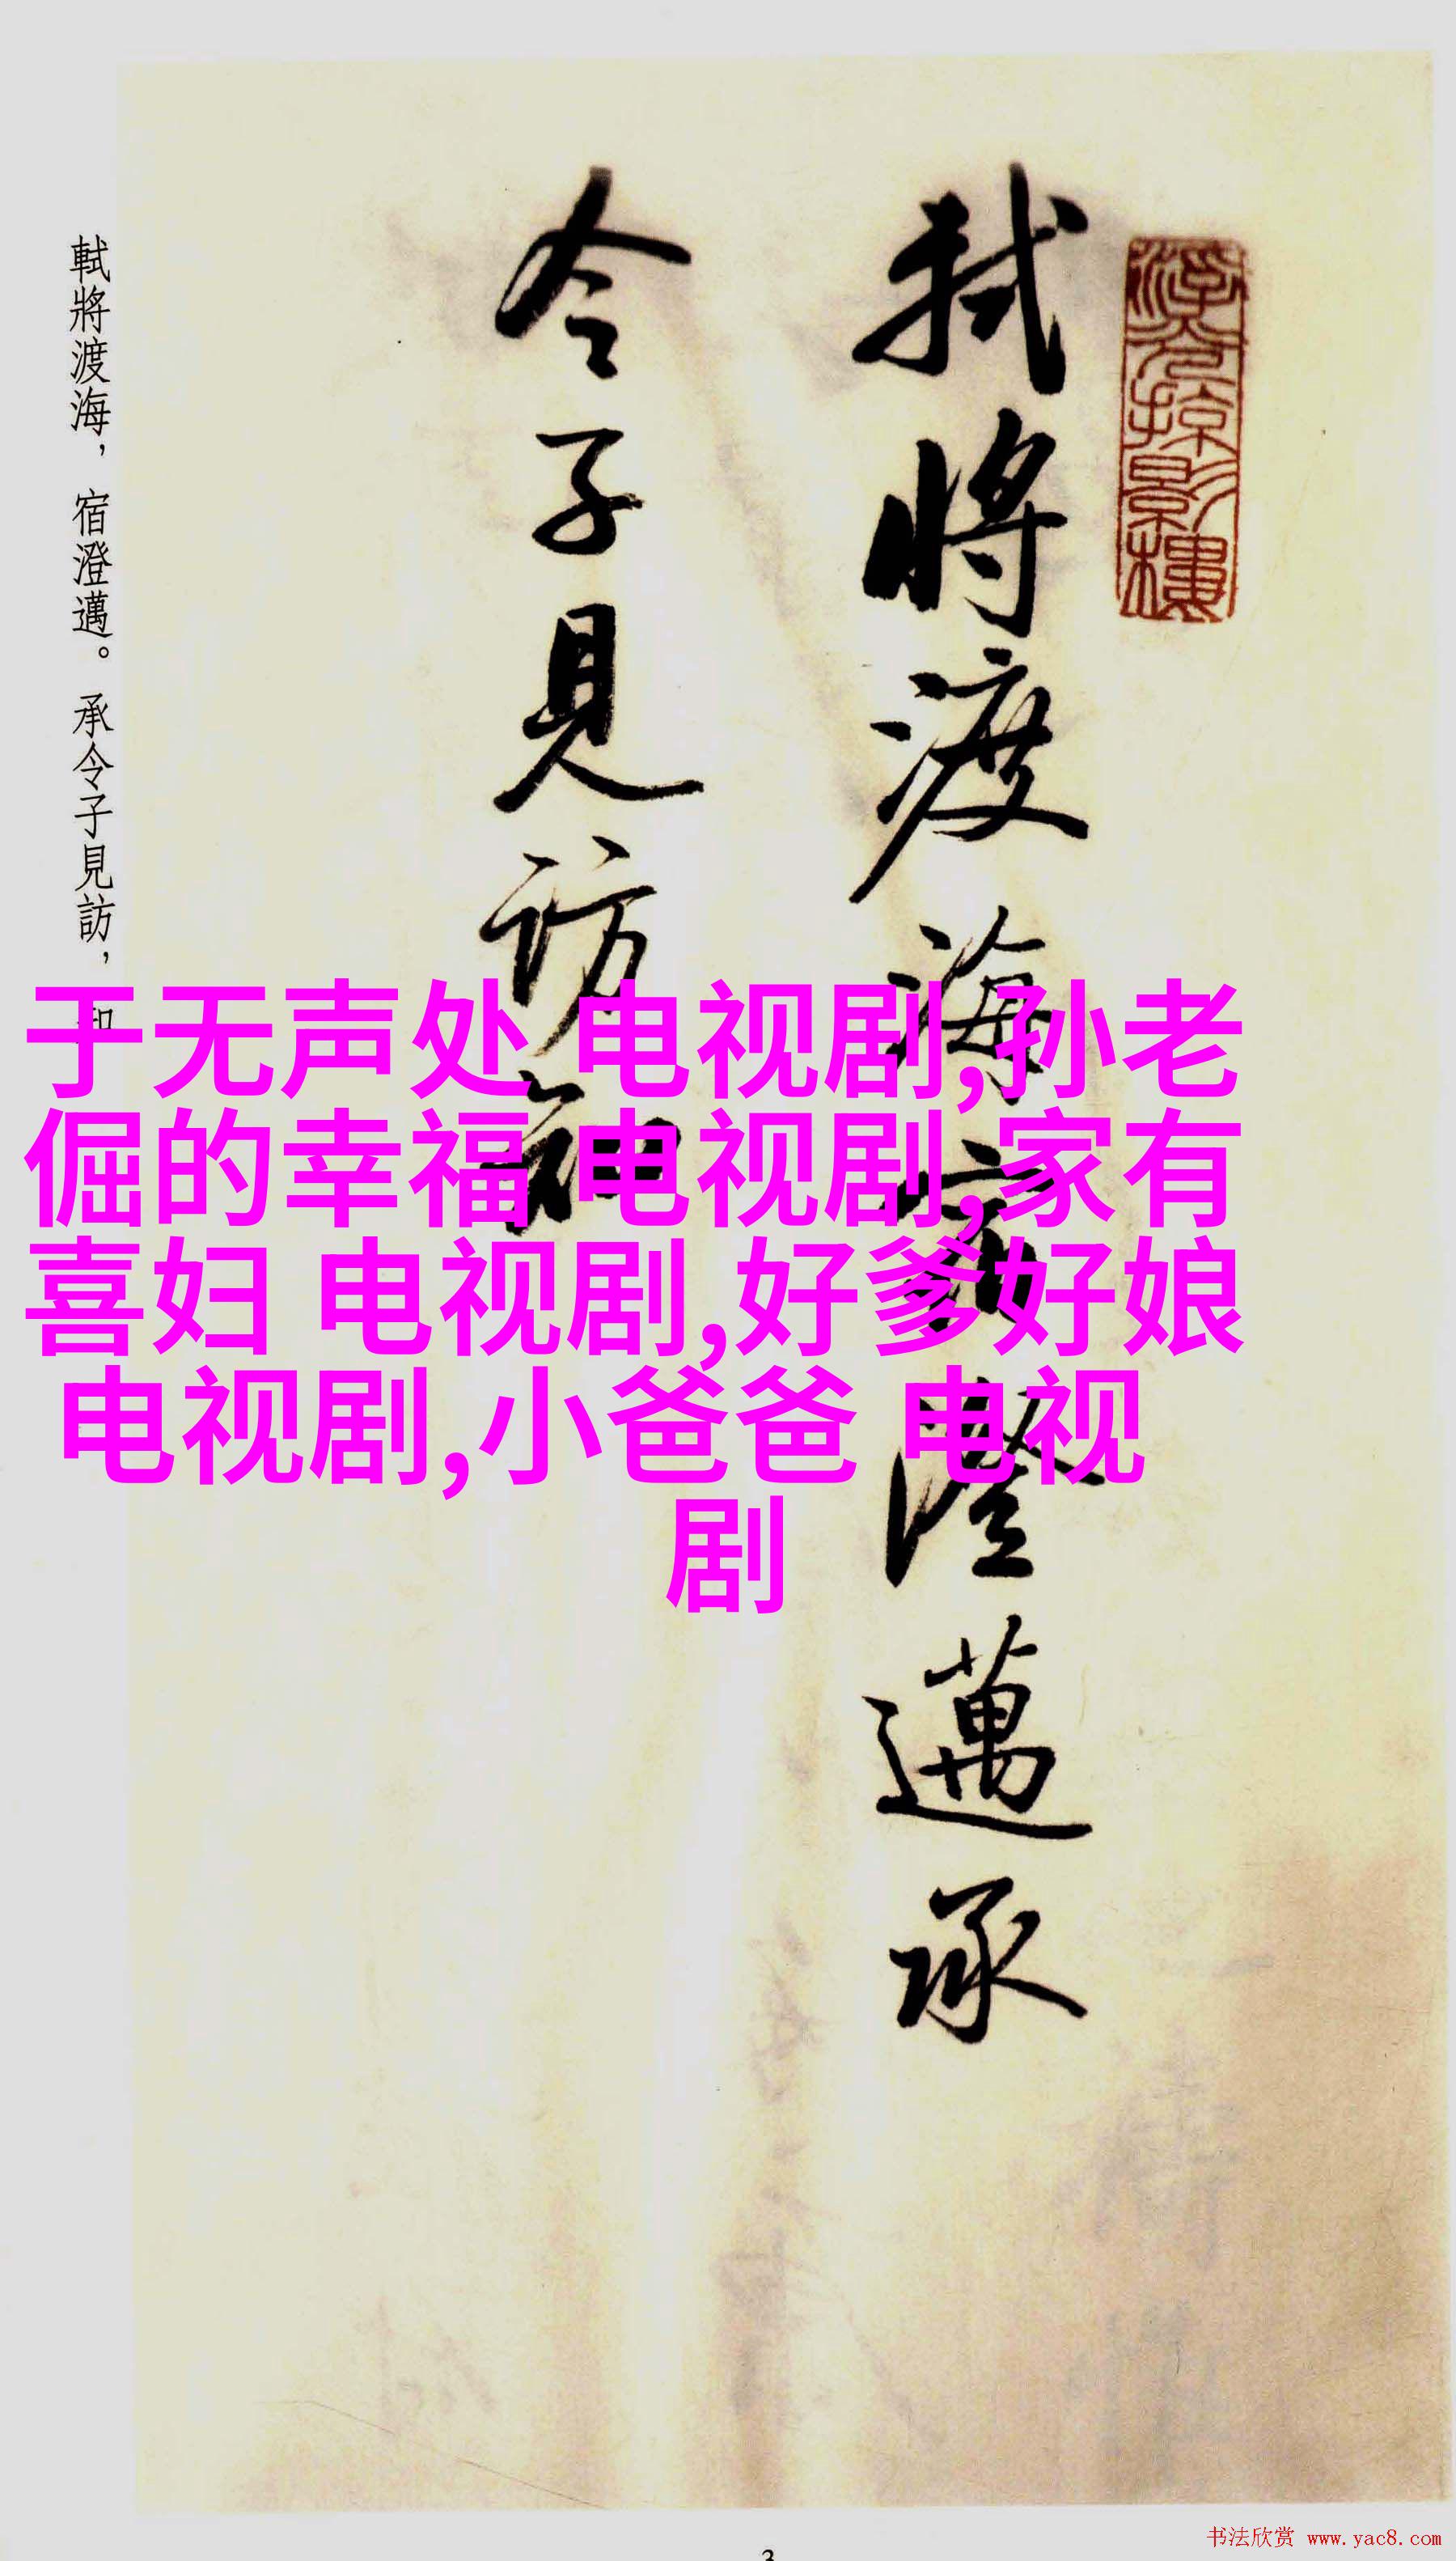 軾將渡海宿澄邁承
令子見訪知
軾將渡海，宿澄邁。承令子見訪，
于无声处 电视剧,孙老
倔的幸福 电视剧,家有
喜妇 电视剧,好爹好娘
电视剧,小爸爸 电视
剧
书法欣赏 www.yac8.com
3